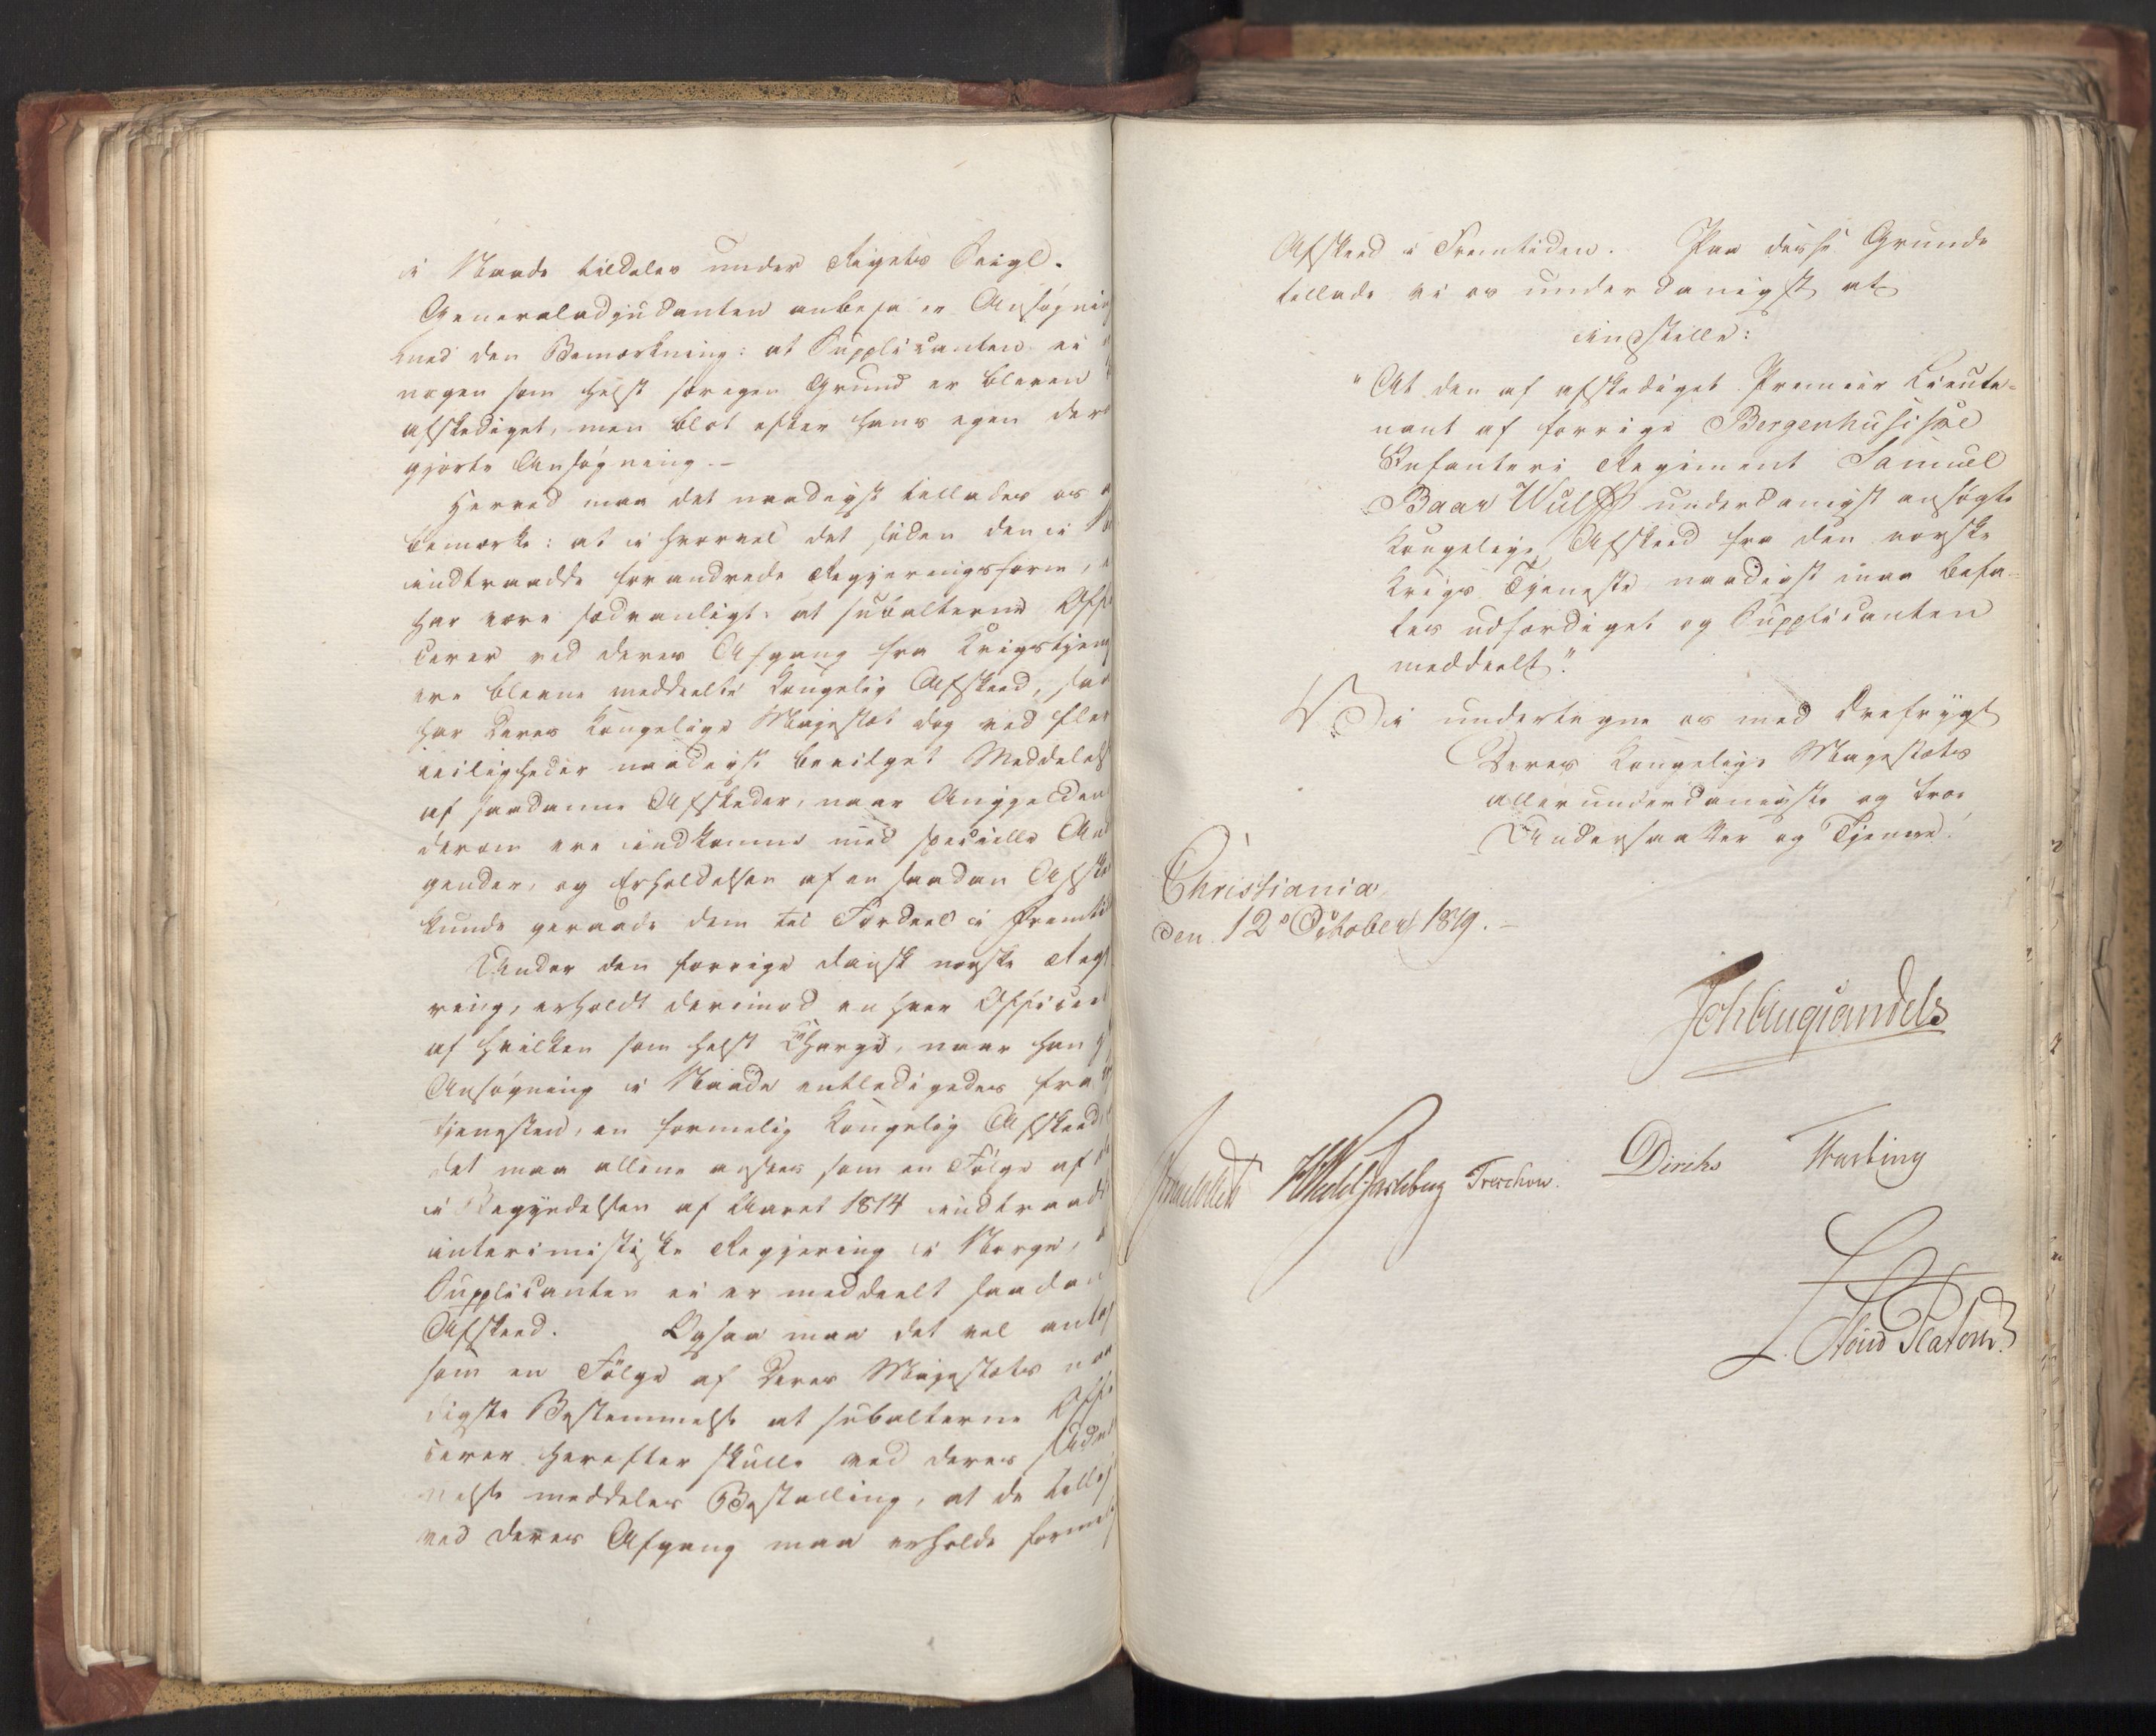 i Naade tildeles under Rigets Seigl.
Generaladjudanten anbefaler Ansøgnin
med den Bemærkning: at Supplicanten ei
nogen som helst søregen Grund er bleven
afskediget, men blot efter hans egen der
gjorte Ansøgning.-
Herved maa det naadigst tillades os
bemærke: at i hvorvel det siden den i
indtraadte forandrede Regjeringsform,
har være sædvanligt: at subalterne Offi
cerer ved deres Afgang fra Krigstjen
ere blevne meddeelte Kongelig Afskeed, saa
har Deres Kongelige Majestæt dog ved fler
leiligheder naadigst bevilget Meddelels
af saadanne Afskeder, naar Ansøgelser
derom ere indkomne med specielle An
gender, og Erholdelsen af en saadan Afske
kunde geraade dem til Fordeel i Fremti
Under den forrige dansk norske Regje
ring, erholdt derimod en hver Officeer
af hvilken som helst Charge, naar han
Ansøgning i Naade entledigedes fra
Tjenesten, en formelig Kongelig Afskeed
det maa allene ansees som en Følge af
i Begyndelsen af Aaret 1814 indtraad
interimistiske Regjering i Norge,
Supplicanten ei er meddeelt saadan
Afskeed. Ogsaa maa det vel antag
som en Følge af Deres Majestæts naa
digste Bestemmelse at subalterne Offi
cerer herefter skulle ved deres Udnæv
nelse meddeles Bestalling, at de tillig
ved deres Afgang maa erholde formel
Afskeed i Fremtiden. Paa disse Grunde
tillade vi os underdanigst at
indstille:
"At den af afskediget Premier Lieute=
nant af forrige Bergenhusiske
Infanteri Regiment Samuel
Baar Wulff underdanigst ansøgte
Kongelige Afskeed fra den norske
Krigs Tjeneste naadigst maa befa=
les udfærdiget og Supplicanten
meddeelt."
Vi undertegne os med Ærefrygt
Deres Kongelige Majestæts
allerunderdanigste og troe
Undersaatter og Tjenere.
Christiania
den 12 October 1819.-
Joh Aug Sandels
Sommerhielm HWedel Jarlsberg Treschow. Diriks Fasting
L. Stoud Platou